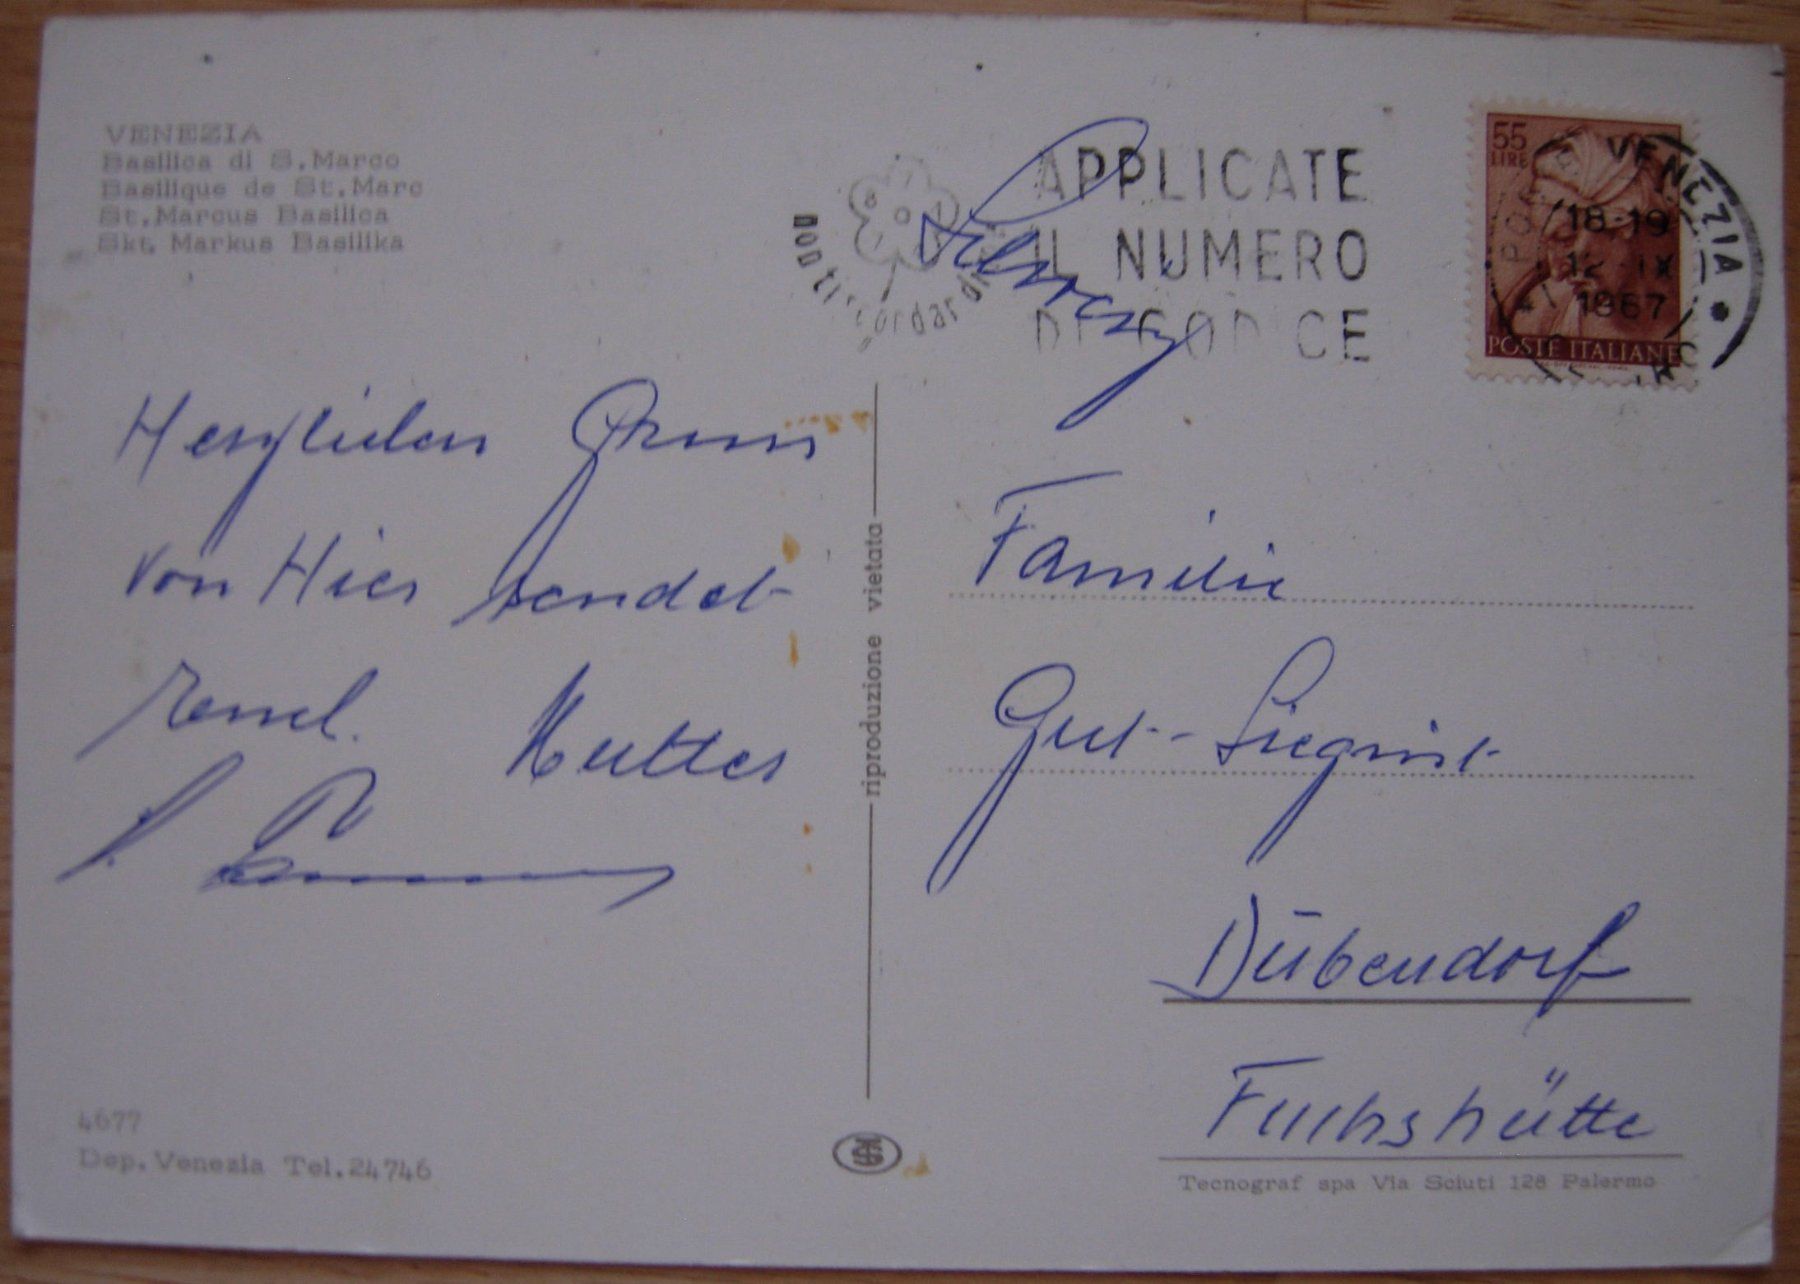 VENEZIA
Basilica di S. Marco
Basilique de St. Marc
St. Marcus Basilica
Skt. Markus Basilika
non ti scordar di
APPLICATE
IL NUMERO
DI CODICE
55
LIRE
POSTE ITALIANE
VENEZIA
18-19
12 IX
1967
Herzlichen Gruss
von Hier sendet
Mutter
riproduzione vietata
Familie
Gut-Siegrist
Dübendorf
Fuchshütte
4677
Dep. Venezia Tel. 24746
Tecnograf spa Via Sciuti 128 Palermo